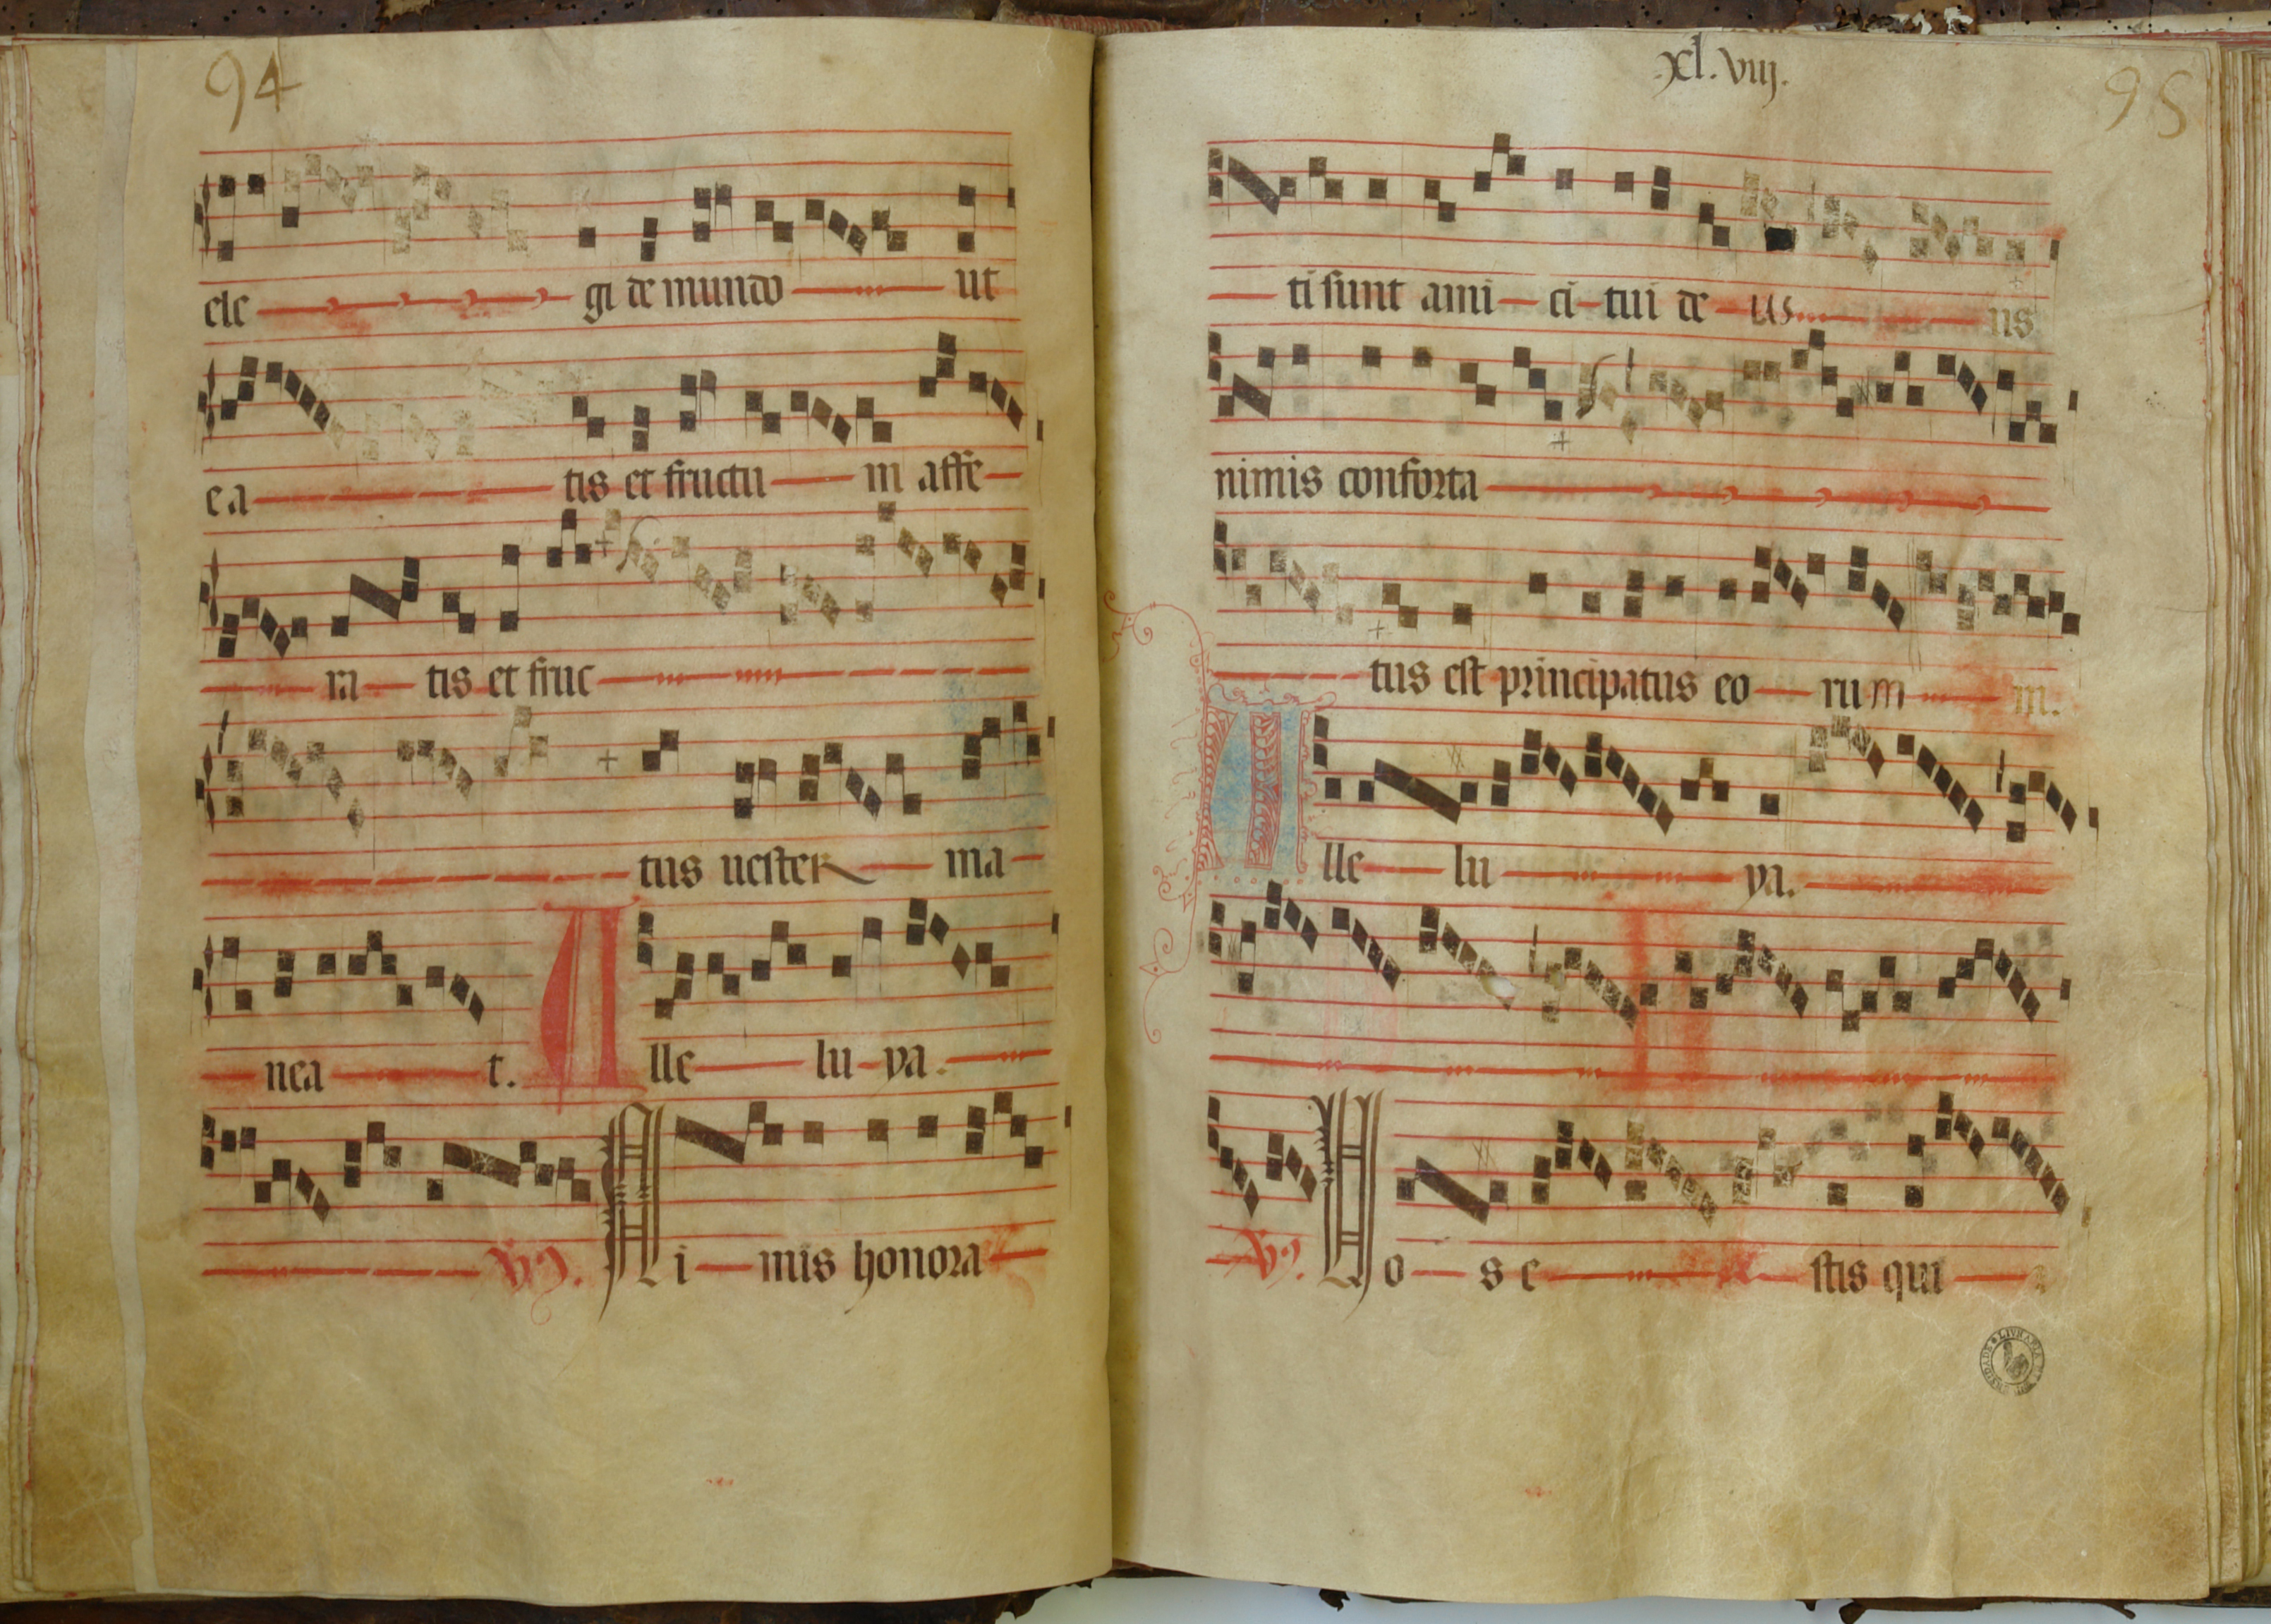 94
ele gi de mundo ut
ea tis et fructu m affe
ra tis et fruc
tus uester ma
nea t. A lle lu ya.
V. N i mis honora
xl.viij.
95
ti sunt ami ci tui de us us
nimis conforta
tus est principatus eo rum m.
A lle lu ya.
V. U o s e stis qui